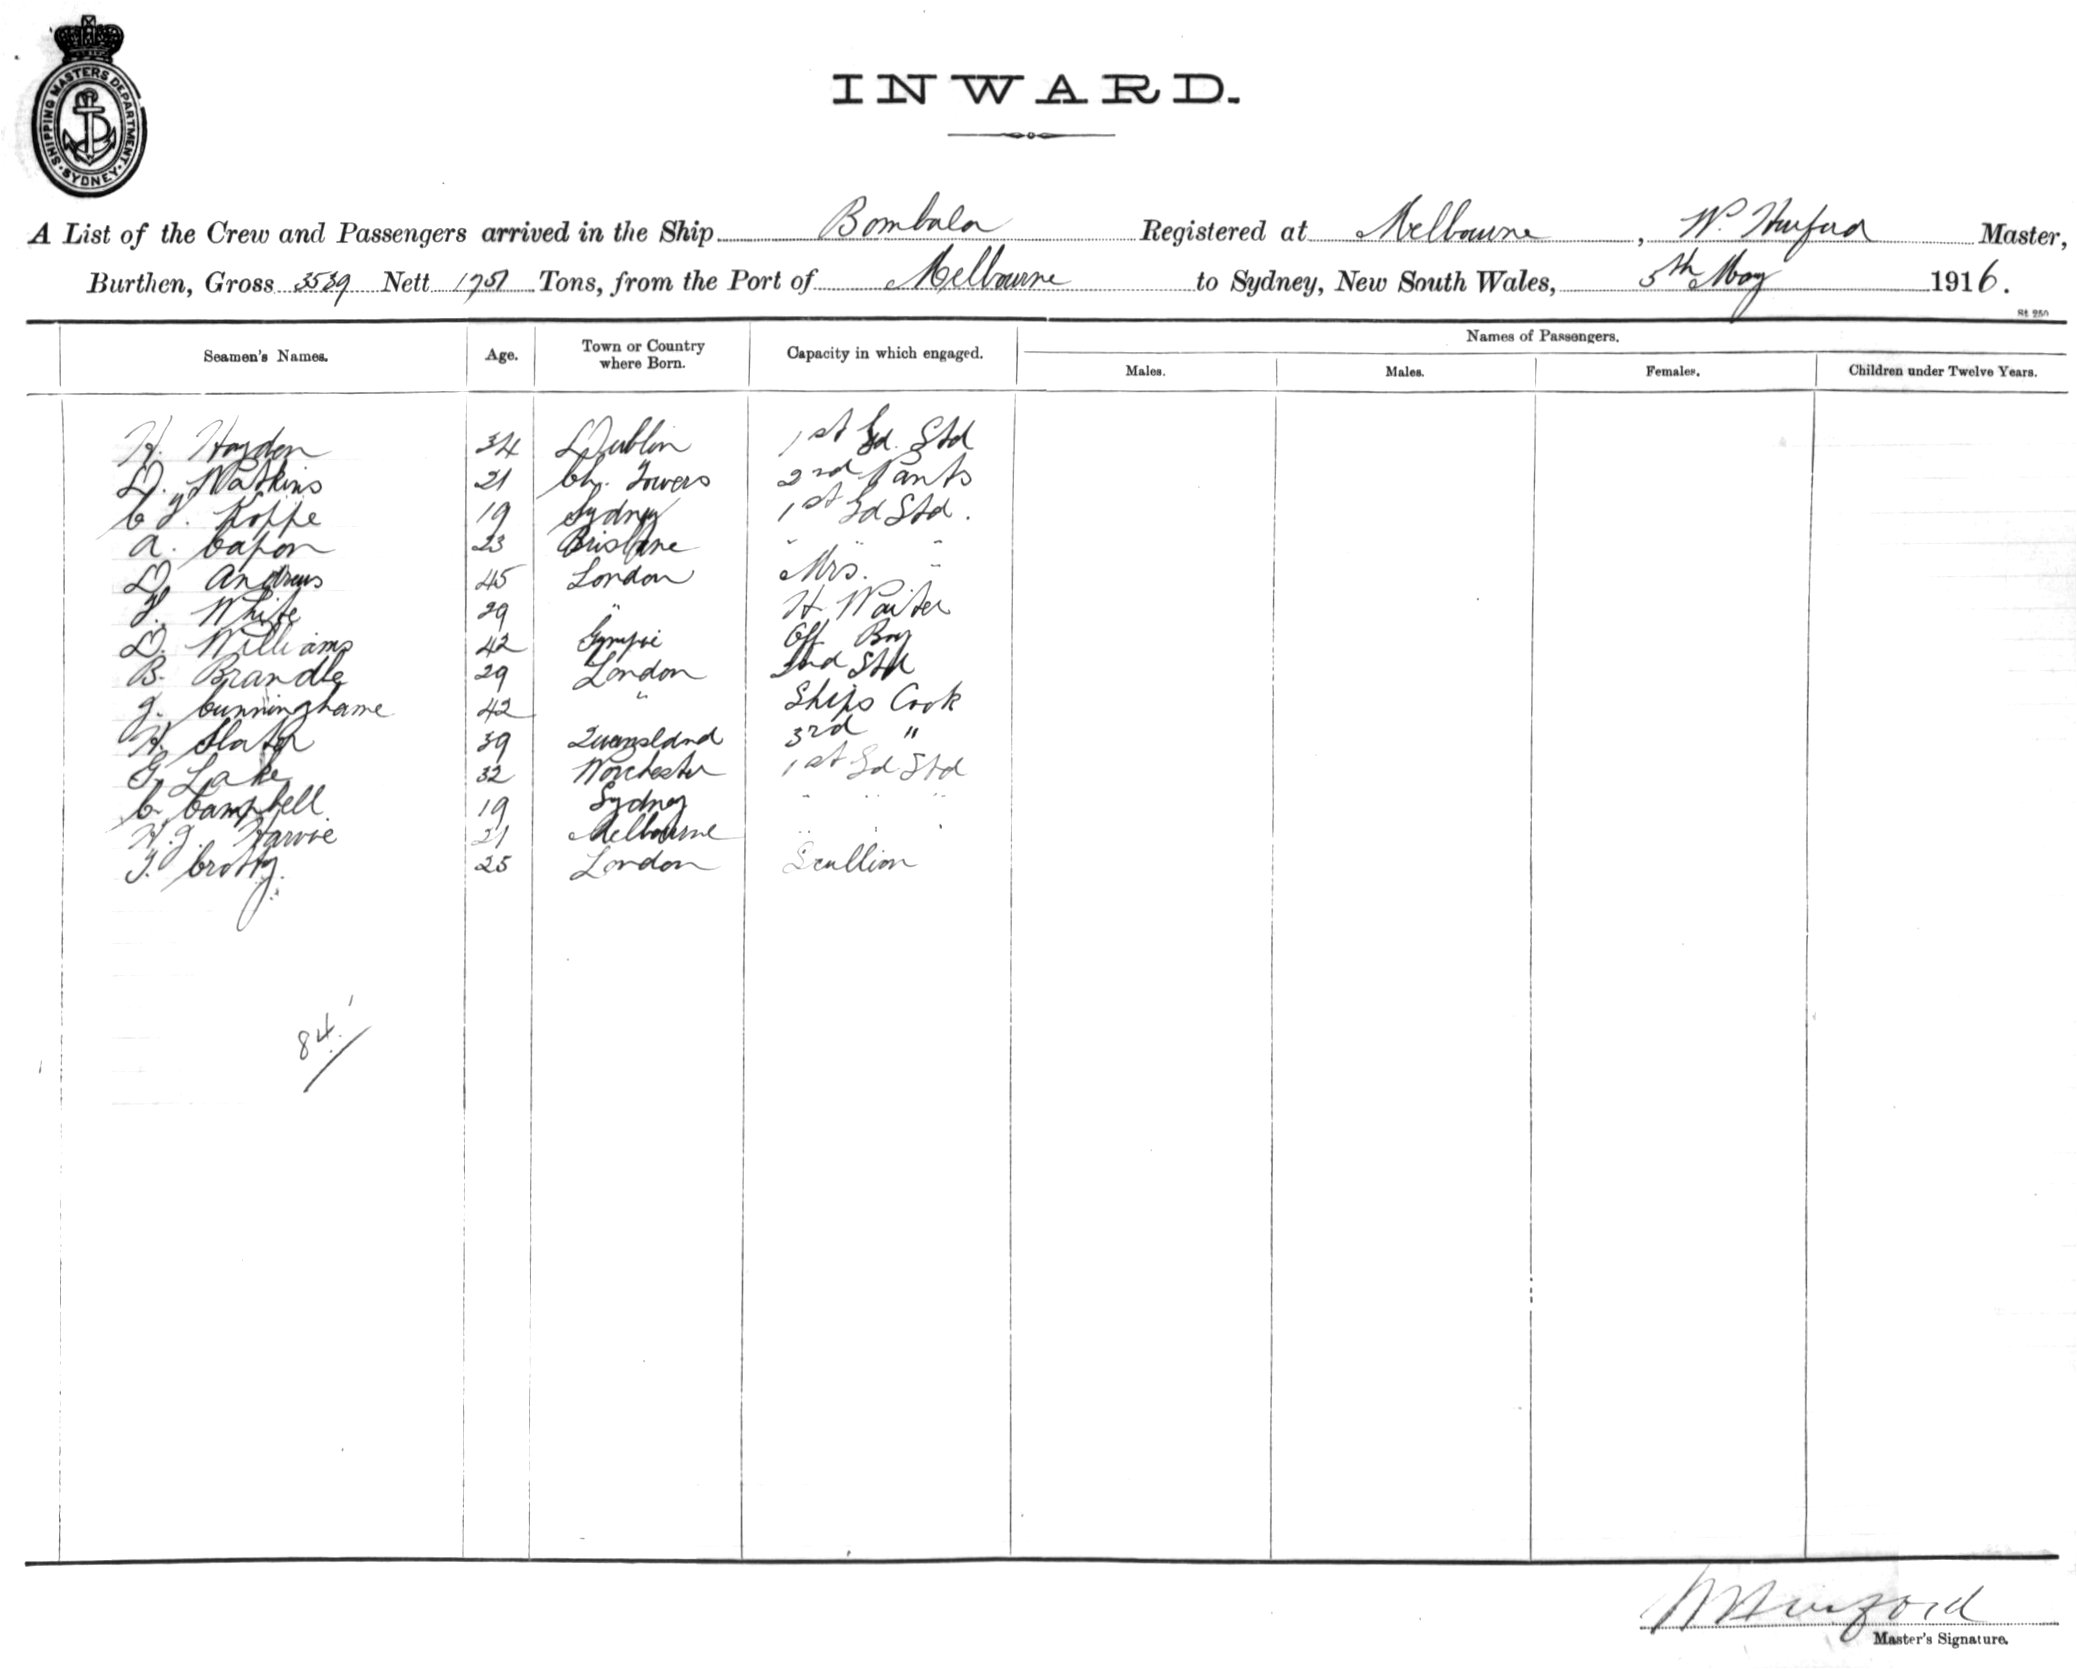 SHIPPING MASTERS DEPARTMENT. SYDNEY.
INWARD.
A List of the Crew and Passengers arrived in the Ship Bombala Registered at Melbourne, W. Hurford Master,
Burthen, Gross 3539 Nett 1751 Tons, from the Port of Melbourne to Sydney, New South Wales, 5th May 1916.
St 250
Names of Passengers.
Seamen's Names. Age. Town or Country where Born. Capacity in which engaged. Males. Males. Females. Children under Twelve Years.
H. Hayden 34 Dublin 1st Sd. Std
D. Watkins 21 Ch. Towers 2nd Pants
C. Koppe 19 Sydney 1st Sd Std.
A. Capon 23 Brisbane " " "
D. Andrews 45 London Mrs. "
F. White 29 " H. Waiter
D. Williams 42 Gympie Off Boy
B. Brandle 29 London 2nd Std
J. Cunninghame 42 " Ships Cook
H. Slater 39 Queensland 3rd "
G. Lake 32 Worchester 1st Sd Std
C. Campbell 19 Sydney " " "
H.J. Harvie 21 Melbourne " " "
J. Crotty. 25 London Scullion
84
W Hurford
Master's Signature.